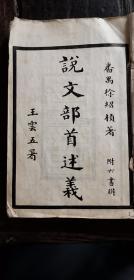 番禺徐紹楨著
附六書辨
說文部首述義
王雲五署